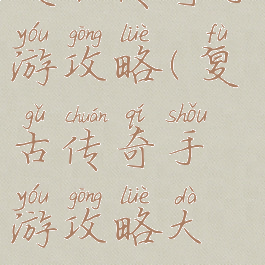 yóu gōng lüè fù
游攻略(复
gǔ chuán qí shǒu
古传奇手
yóu gōng lüè dà
游攻略大